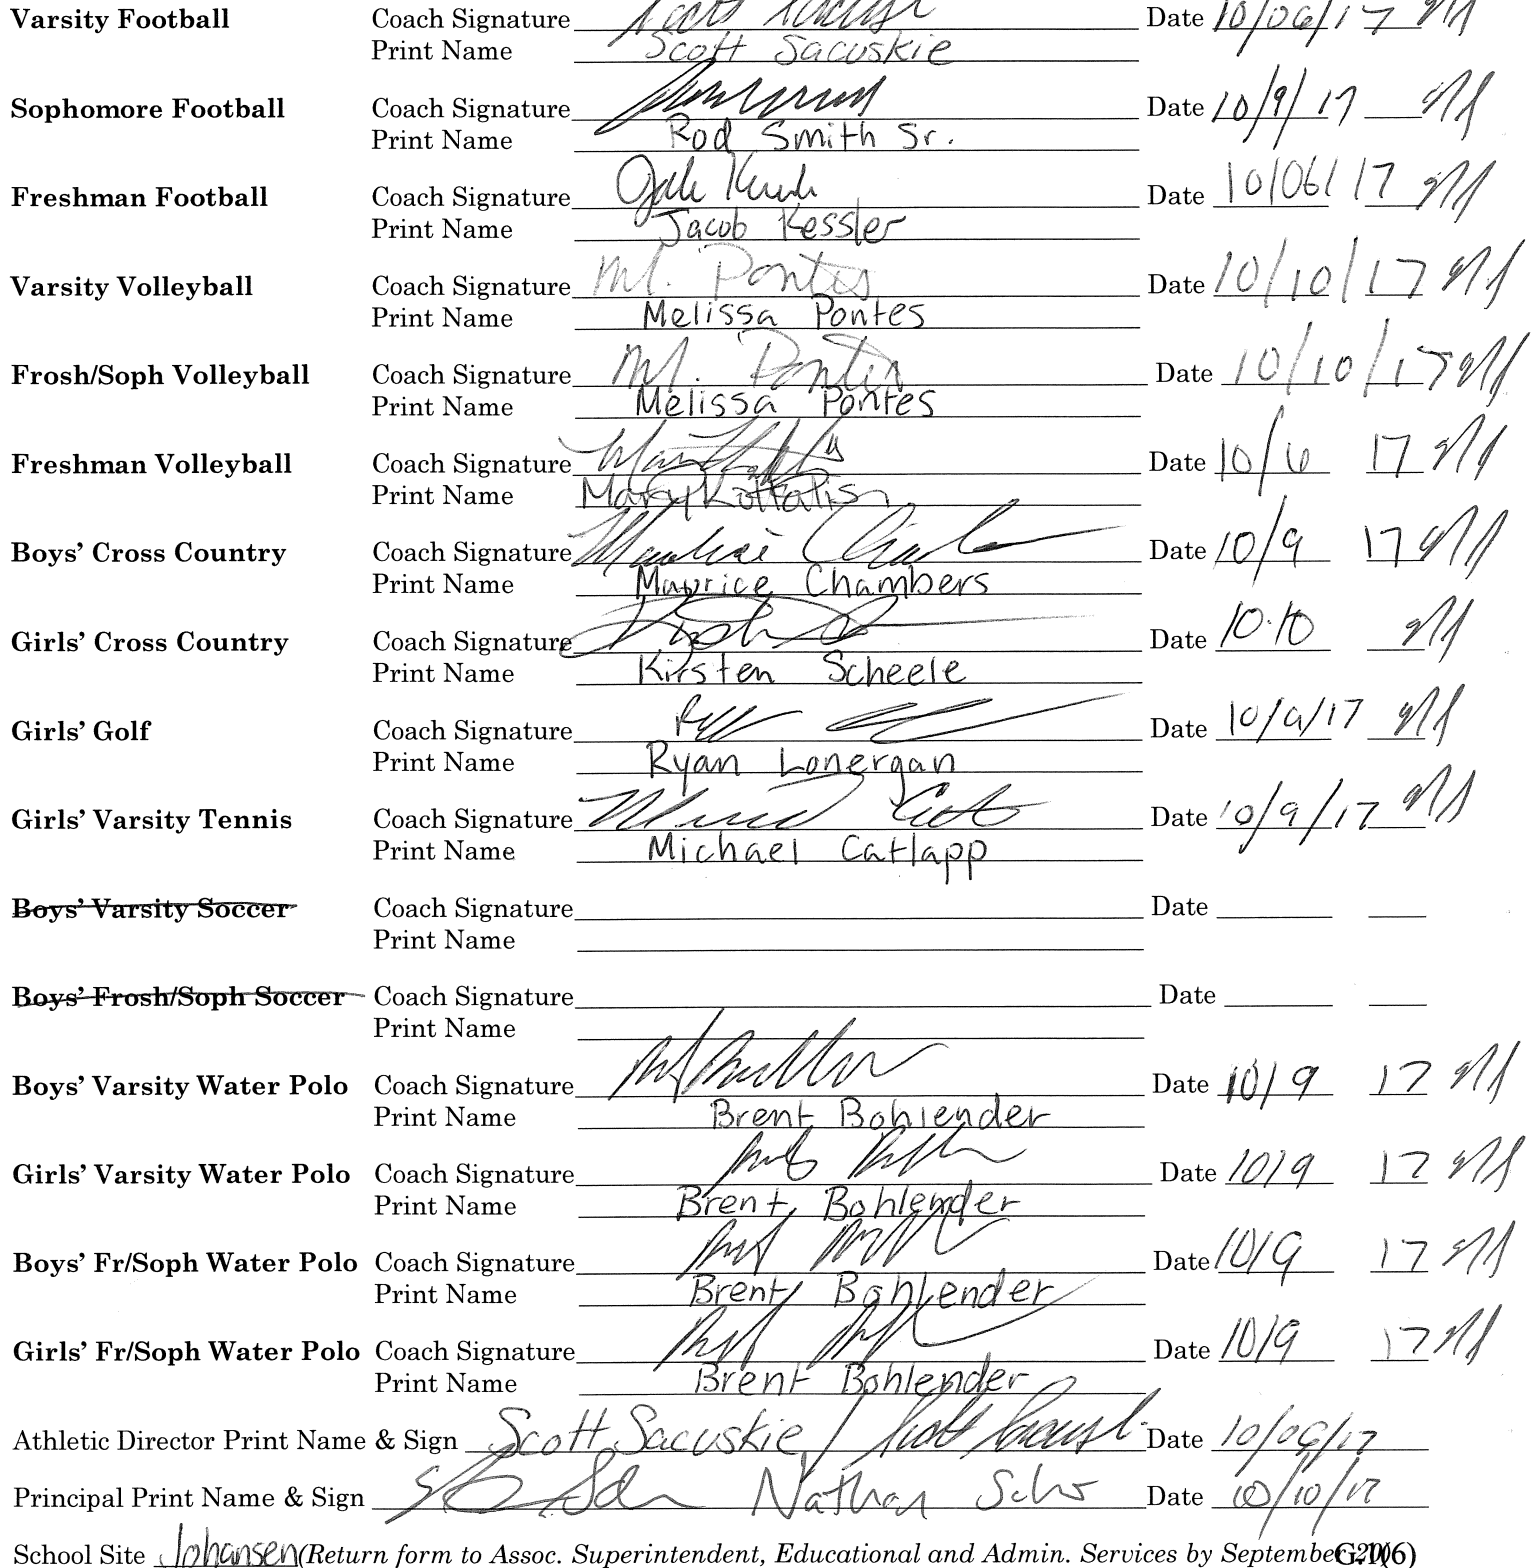 Varsity Football Coach Signature Scott Sacuskie Date 10/06/17
Print Name Scott Sacuskie
Sophomore Football Coach Signature Date 10/9/17
Print Name Rod Smith Sr.
Freshman Football Coach Signature Date 10/06/17
Print Name Jacob Kessler
Varsity Volleyball Coach Signature M. Pontes Date 10/10/17
Print Name Melissa Pontes
Frosh/Soph Volleyball Coach Signature M. Pontes Date 10/10/17
Print Name Melissa Pontes
Freshman Volleyball Coach Signature Date 10/6 17
Print Name Mary
Boys' Cross Country Coach Signature Maurice Chambers Date 10/9 17
Print Name Maurice Chambers
Girls' Cross Country Coach Signature Date 10.10
Print Name Kirsten Scheele
Girls' Golf Coach Signature Date 10/9/17
Print Name Ryan Lonergan
Girls' Varsity Tennis Coach Signature Date 10/9/17
Print Name Michael Catlapp
Boys' Varsity Soccer Coach Signature Date
Print Name
Boys' Frosh/Soph Soccer Coach Signature Date
Print Name
Boys' Varsity Water Polo Coach Signature Date 10/9 17
Print Name Brent Bohlender
Girls' Varsity Water Polo Coach Signature Date 10/9 17
Print Name Brent Bohlender
Boys' Fr/Soph Water Polo Coach Signature Date 10/9 17
Print Name Brent Bohlender
Girls' Fr/Soph Water Polo Coach Signature Date 10/9 17
Print Name Brent Bohlender
Athletic Director Print Name & Sign Scott Sacuskie / Scott Sacuskie Date 10/06/17
Principal Print Name & Sign Nathan Date 10/10/17
School Site Johansen (Return form to Assoc. Superintendent, Educational and Admin. Services by September